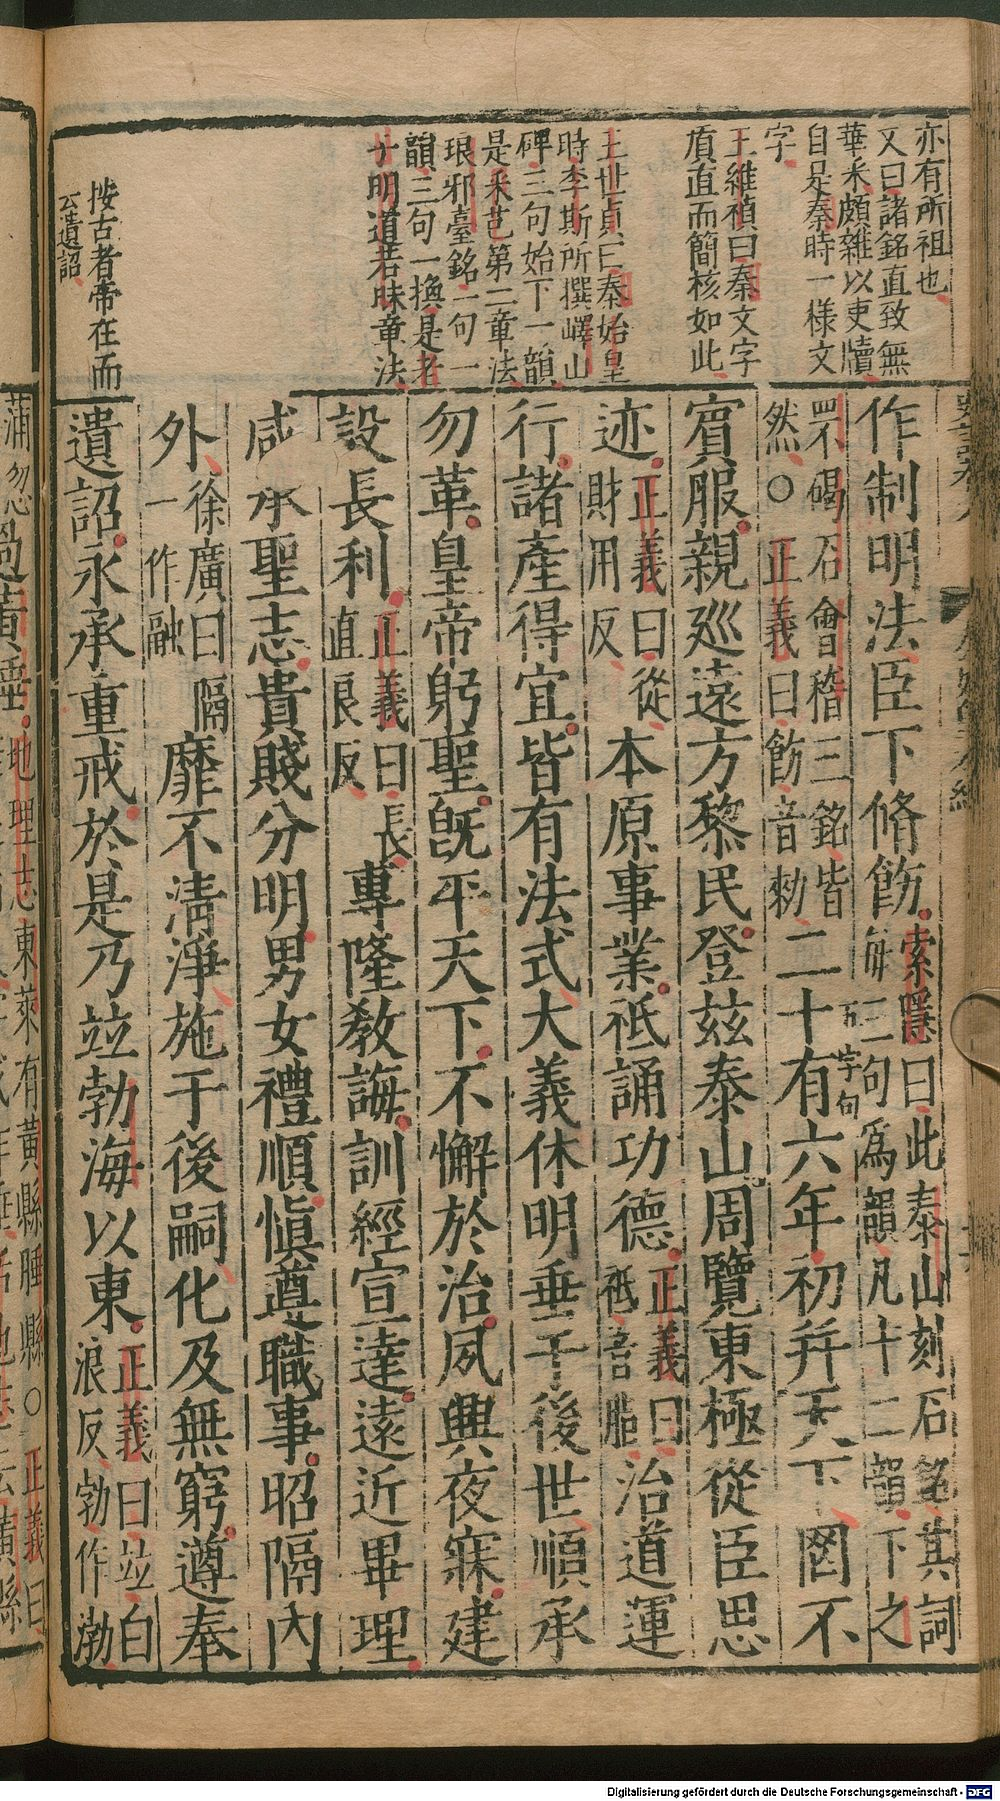 亦有所祖也
又曰諸銘直致無
華釆頗雜以吏牘
自是秦時一樣文
字
王維禎曰秦文字
質直而簡核如此
王世貞曰秦始皇
時李斯所撰嶧山
碑三句始下一韻
是釆芑第二章法
琅邪臺銘一句一
韻三句一換是老
子明道若昧章法
按古者帝在而
云遺詔
作制明法臣下脩飭索隱曰此泰山刻石銘其詞
每三句爲韻凡十二韻下之
罘碣石會稽三銘皆
然○正義曰飭音勑二十有六年初并天下罔不
五字句
賓服親廵遠方黎民登兹泰山周覽東極從臣思
迹正義曰從
財用反本原事業祗誦功德正義曰
祗音脂治道運
行諸產得宜皆有法式大義休明垂于後世順承
勿革皇帝躬聖旣平天下不懈於治夙興夜寐建
設長利正義曰長
直良反專隆敎誨訓經宣達遠近畢理
咸承聖志貴賤分明男女禮順愼遵職事昭隔內
外徐廣曰隔
一作融靡不清淨施于後嗣化及無窮遵奉
遺詔永承重戒於是乃竝勃海以東正義曰竝白
浪反勃作渤
東萊有黃縣腄縣○正義曰
Digitalisierung gefördert durch die Deutsche Forschungsgemeinschaft - DFG